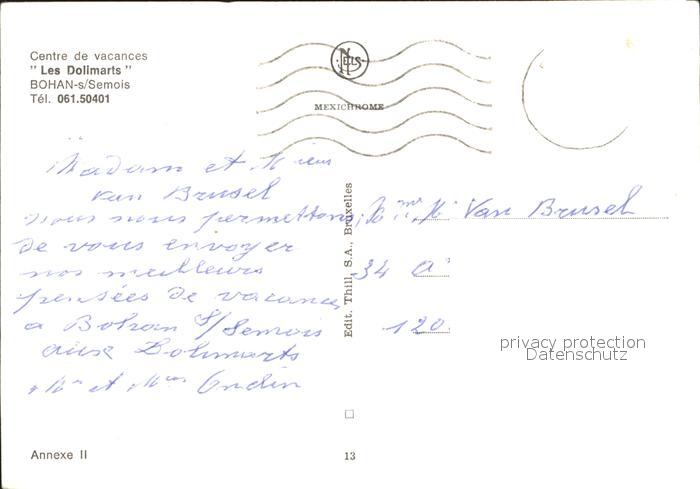 Centre de vacances
" Les Dollmarts "
BOHAN-s/Semois
Tél. 061.50401
NELS
MEXICHROME
Madam et Mieur
van Brusel
nous nous permettons
de vous envoyer
nos meilleurs
pensées de vacances
a Bohan s/Semois
aux Dolmarts
Mr et Mme
Edit. Thill, S.A., Bruxelles
Van Brusel
34 a
120
privacy protection
Datenschutz
Annexe II
13